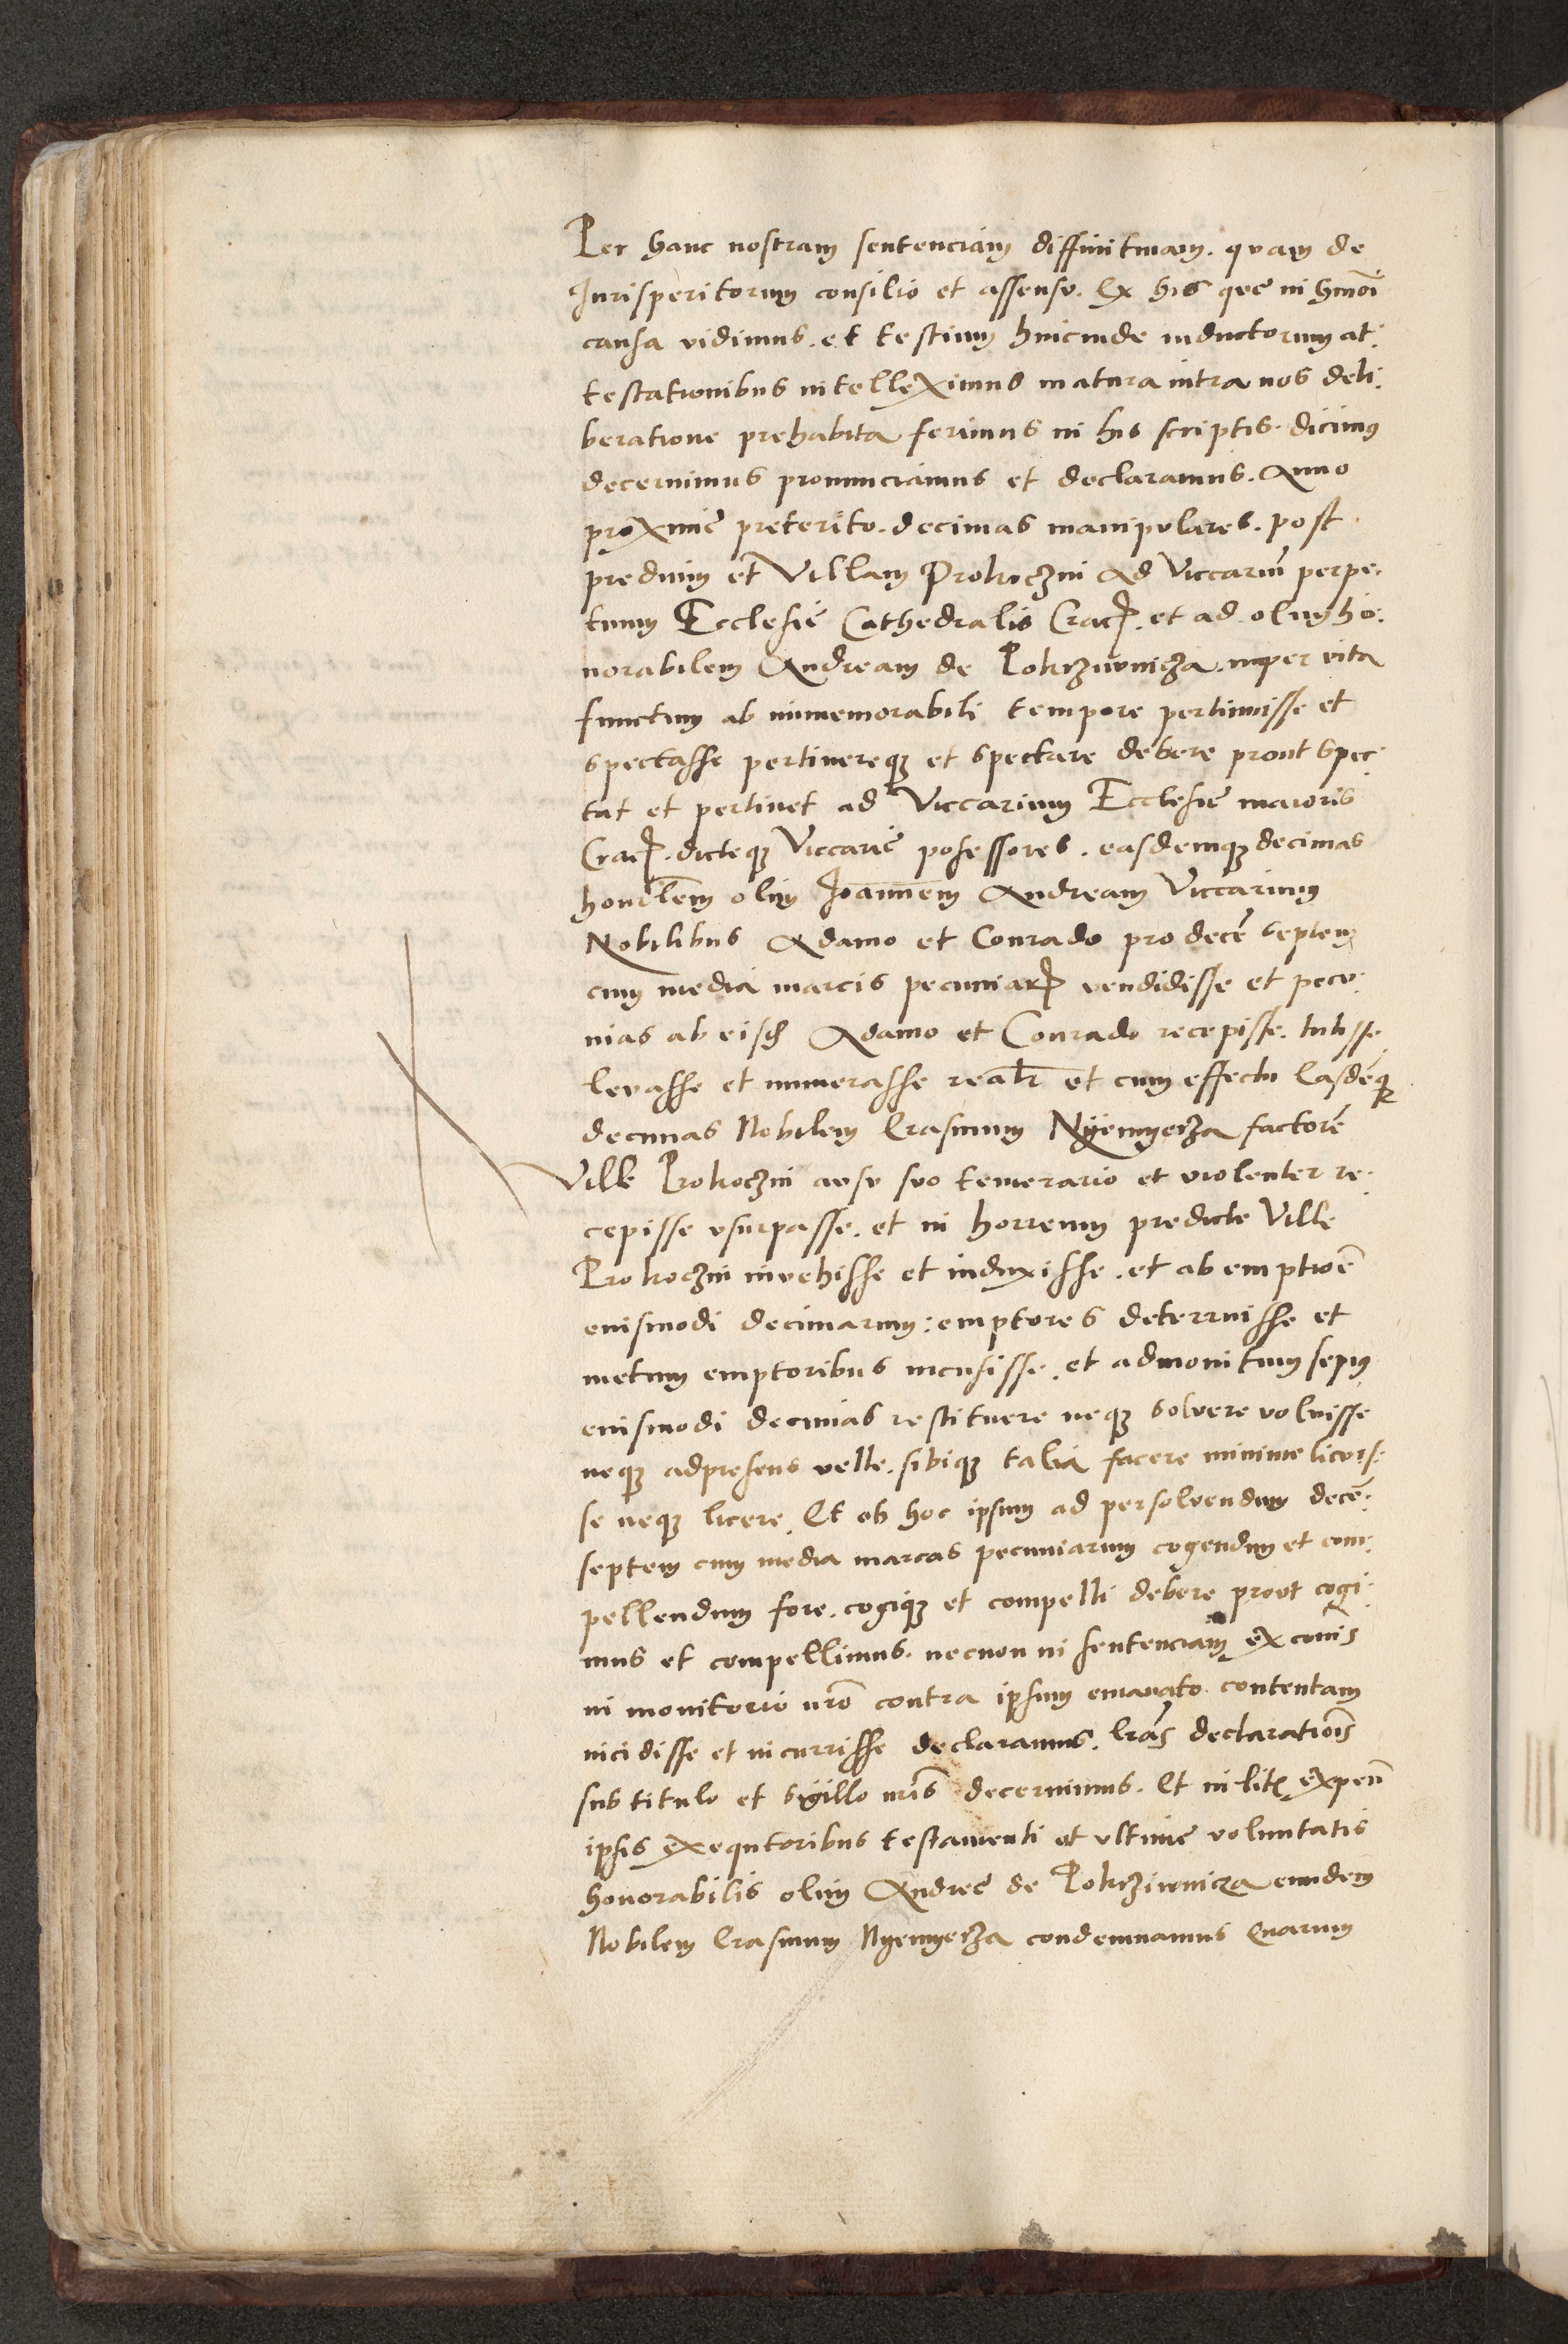 Per hanc nostram sentenciam diffinitiuam. quam de
Jurisperitorum consilio et assensu. Ex his que in hmōi
causa vidimus. et testium hincinde inductorum at:
testationibus intelleximus matura intra nos deli:
beratione prehabita ferimus in his scriptis. dicimus
decernimus pronunciamus et declaramus. Anno
proxime preterito. decimas manipulares. post
predium et Villam Prokoczin Ad Viccariū perpe:
tuum Ecclesie Cathedralis Crac. et ad olim ho:
norabilem Andream de Pokrziwnicza. nuper vita
functum ab immemorabili tempore pertinuisse et
spectasse pertinereqȝ et spectare debere prout spec:
tat et pertinet ad Viccarium Ecclesie maioris
Crac. dicteqȝ Viccarie possessores. easdemqȝ decimas
honorlem olim Joannem Andream Viccarium
Nobilibus Adamo et Conrado pro decē septem
cum media marcis pecuniar vendidisse et pecu:
nias ab eisd Adamo et Conrado recepisse. tulisse
levasse et numerasse realr et cum effectu Easdēqȝ
decimas Nobilem Erasmum Nÿemyerza factorē
Ville Prokoczin ausu suo temerario et violenter re:
cepisse vsurpasse. et in horreum predicte Ville
Prokoczin invehisse et induxisse. et ab emptiōe
eiusmodi decimarum: emptores deterruisse et
metum emptoribus incusisse. et admonitum sepius
eiusmodi decimas restituere neqȝ solvere voluisse
neqȝ adpresens velle. sibiqȝ talia facere minime licuis:
se neqȝ licere. Et ob hoc ipsum ad persolvendum decē:
septem cum media marcas pecuniarum cogendum et com:
pellendum fore. cogiqȝ et compelli debere prout cogi:
mus et compellimus. necnon in sentenciam excōis
in monitorio nrō contra ipsum emanato contentam
incidisse et incurrisse declaramus. lrās declaratiōis
sub titulo et sigillo nrīs decernimus. Et in litis expen
ipsis exequtoribus testamenti et vltime voluntatis
honorabilis olim Andree de Pokrziwnicza eundem
Nobilem Erasmum Nyemyerza condemnamus Quarum